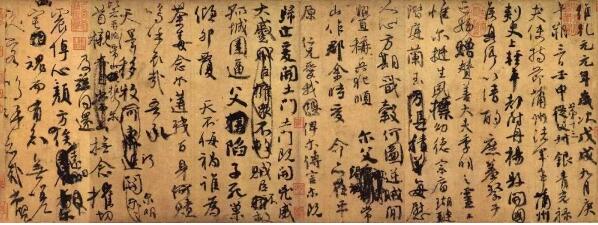 維乾元元年歲次戊戌九月庚
午朔三日壬申第十三叔銀青光祿
夫使持節蒲州諸軍事蒲州
刺史上輕車都尉丹楊縣開國
侯真卿以清酌庶羞祭于
亡姪贈贊善大夫季明之靈曰
惟爾挺生夙標幼德宗廟瑚璉
階庭蘭玉每慰
人心方期戩穀何圖逆賊閒
釁稱兵犯順爾父竭誠常
山作郡余時受命亦在平
原仁兄愛我俾爾傳言爾既
歸止爰開土門土門既開兇威
大蹙賊臣不救
孤城圍逼父陷子死巢
傾卵覆天不悔禍誰為
荼毒念爾遘殘百身何贖
嗚乎哀哉吾承
天澤移牧河關泉明
比者再陷常山攜爾
首櫬及茲同還撫念摧切
震悼心顏方俟遠日
魂而有知無嗟